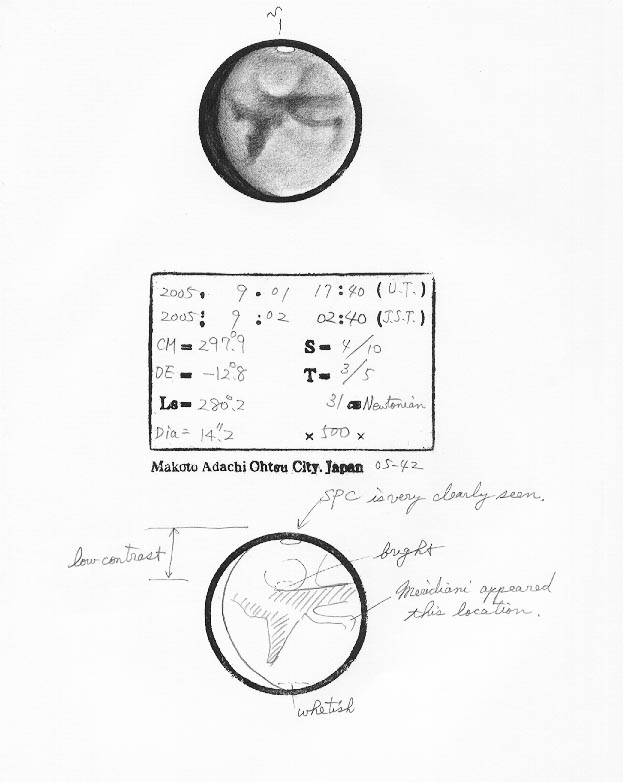 S
2005. 9.01 17:40 (U.T.)
2005: 9:02 02:40 (J.S.T.)
CM = 297.°9 S = 4/10
DE = -12.°8 T = 3/5
Ls = 280.°2 31 cm Newtonian
Dia = 14."2 × 500 ×
Makoto Adachi Ohtsu City. Japan 05-42
SPC is very clearly seen.
low contrast
bright
Meridiani appeared
this location.
whetish